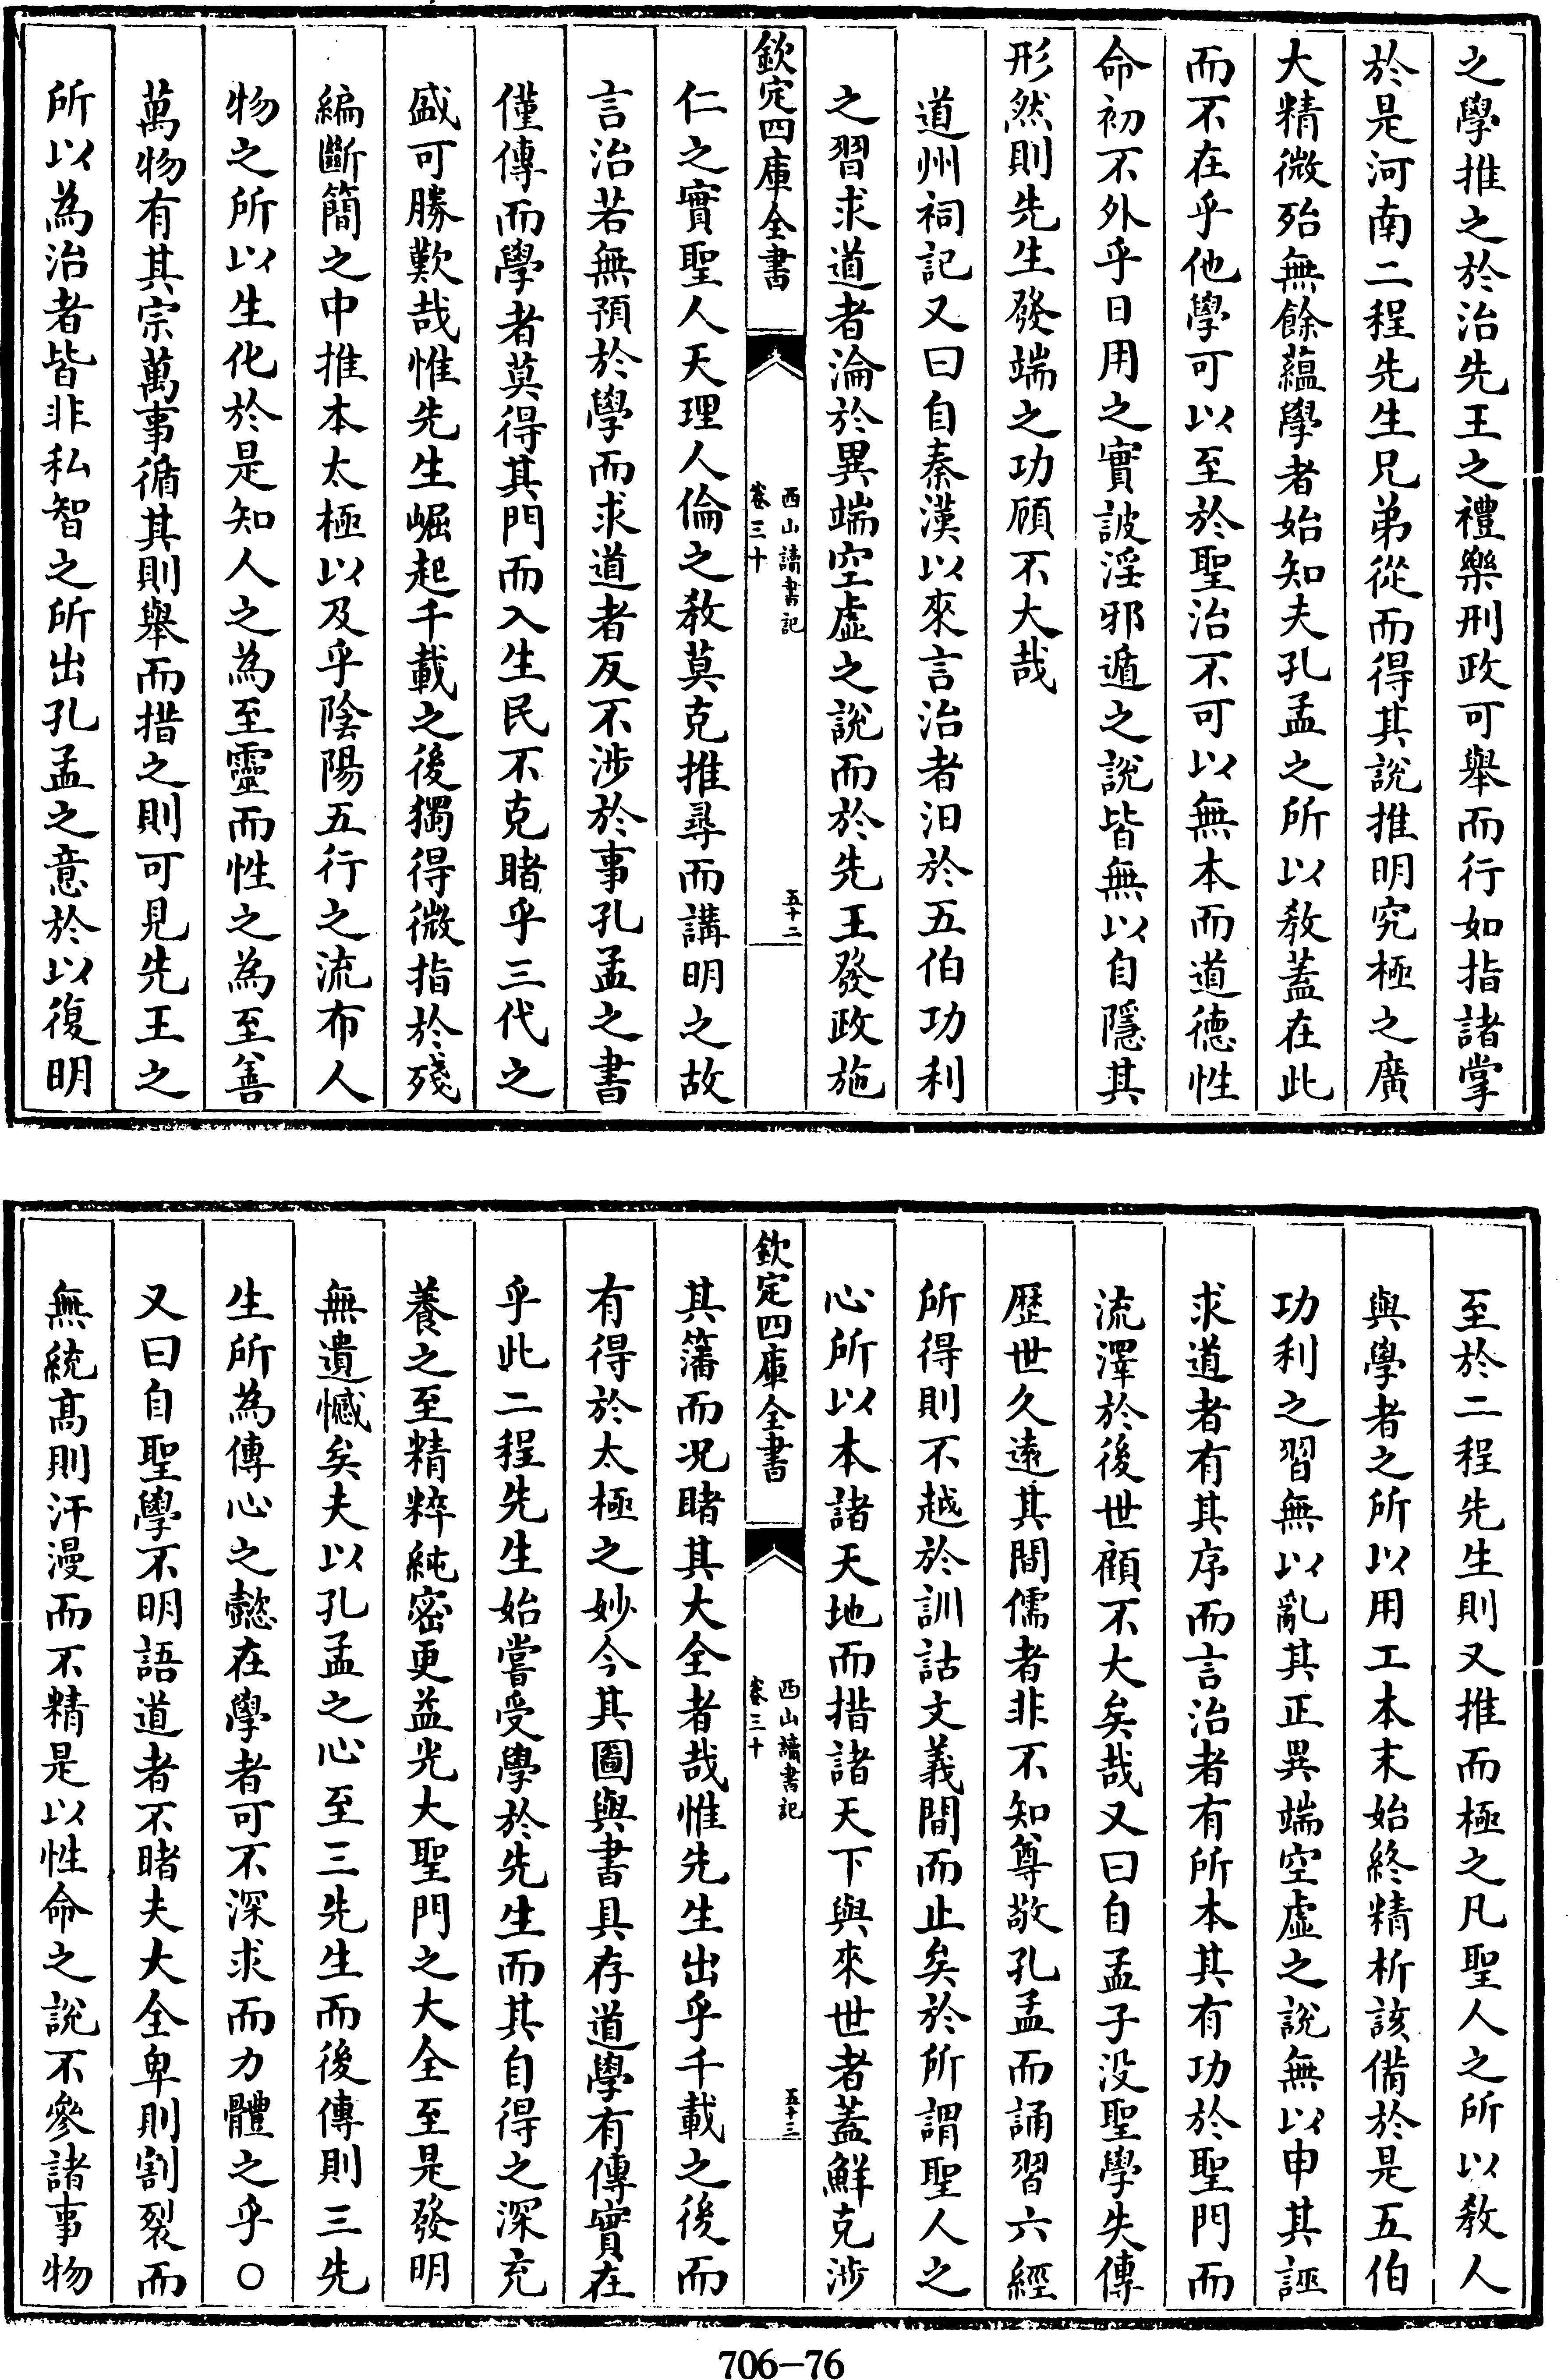 之學推之於治先王之禮樂刑政可舉而行如指諸掌
於是河南二程先生兄弟從而得其說推明究極之廣
大精微殆無餘蘊學者始知夫孔孟之所以教蓋在此
而不在乎他學可以至於聖治不可以無本而道德性
命初不外乎日用之實詖淫邪遁之說皆無以自隱其
形然則先生發端之功顧不大哉
道州祠記又曰自秦漢以來言治者汨於五伯功利
之習求道者淪於異端空虛之說而於先王發政施
欽定四庫全書
西山讀書記
卷三十
五十二
仁之實聖人天理人倫之教莫克推尋而講明之故
言治若無預於學而求道者反不涉於事孔孟之書
僅傳而學者莫得其門而入生民不克睹乎三代之
盛可勝歎哉惟先生崛起千載之後獨得微指於殘
編斷簡之中推本太極以及乎陰陽五行之流布人
物之所以生化於是知人之為至靈而性之為至善
萬物有其宗萬事循其則舉而措之則可見先王之
所以為治者皆非私智之所出孔孟之意於以復明
至於二程先生則又推而極之凡聖人之所以教人
與學者之所以用工本末始終精析該備於是五伯
功利之習無以亂其正異端空虛之說無以申其誣
求道者有其序而言治者有所本其有功於聖門而
流澤於後世顧不大矣哉又曰自孟子没聖學失傳
歷世久遠其間儒者非不知尊敬孔孟而誦習六經
所得則不越於訓詁文義間而止矣於所謂聖人之
心所以本諸天地而措諸天下與來世者蓋鮮克涉
欽定四庫全書
西山讀書記
卷三十
五十三
其藩而况睹其大全者哉惟先生出乎千載之後而
有得於太極之妙今其圖與書具存道學有傳實在
乎此二程先生始嘗受學於先生而其自得之深充
養之至精粹純密更益光大聖門之大全至是發明
無遺憾矣夫以孔孟之心至三先生而後傳則三先
生所為傳心之懿在學者可不深求而力體之乎○
又曰自聖學不明語道者不睹夫大全卑則割裂而
無統高則汗漫而不精是以性命之說不參諸事物
706-76